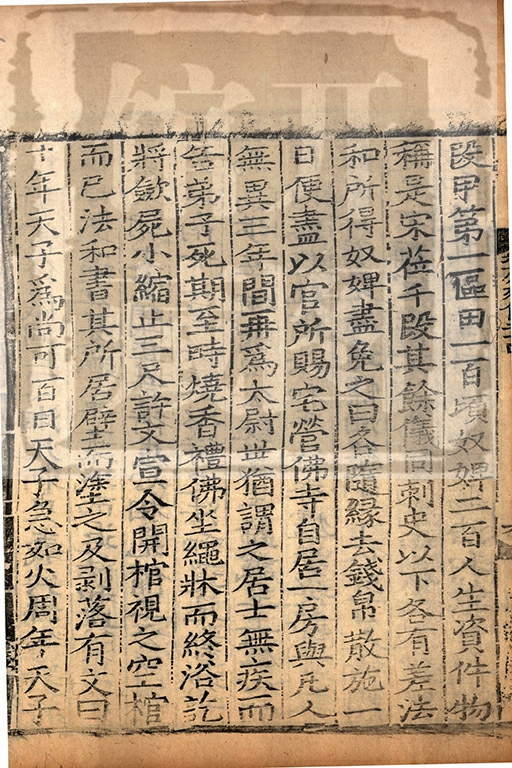 段甲第一區田一百頃奴婢二百人生資什物
稱是宋莅千段其餘儀同刺史以下各有差法
和所得奴婢盡免之曰各隨緣去錢帛散施一
日便盡以官所賜宅營佛寺自居一房與凡人
無異三年間再爲太尉世猶謂之居士無疾而
告弟子死期至時燒香禮佛坐繩牀而終浴訖
將斂屍小縮止三尺許文宣令開棺視之空棺
而已法和書其所居壁而塗之及剥落有文曰
十年天子爲尚可百日天子急如火周年天子